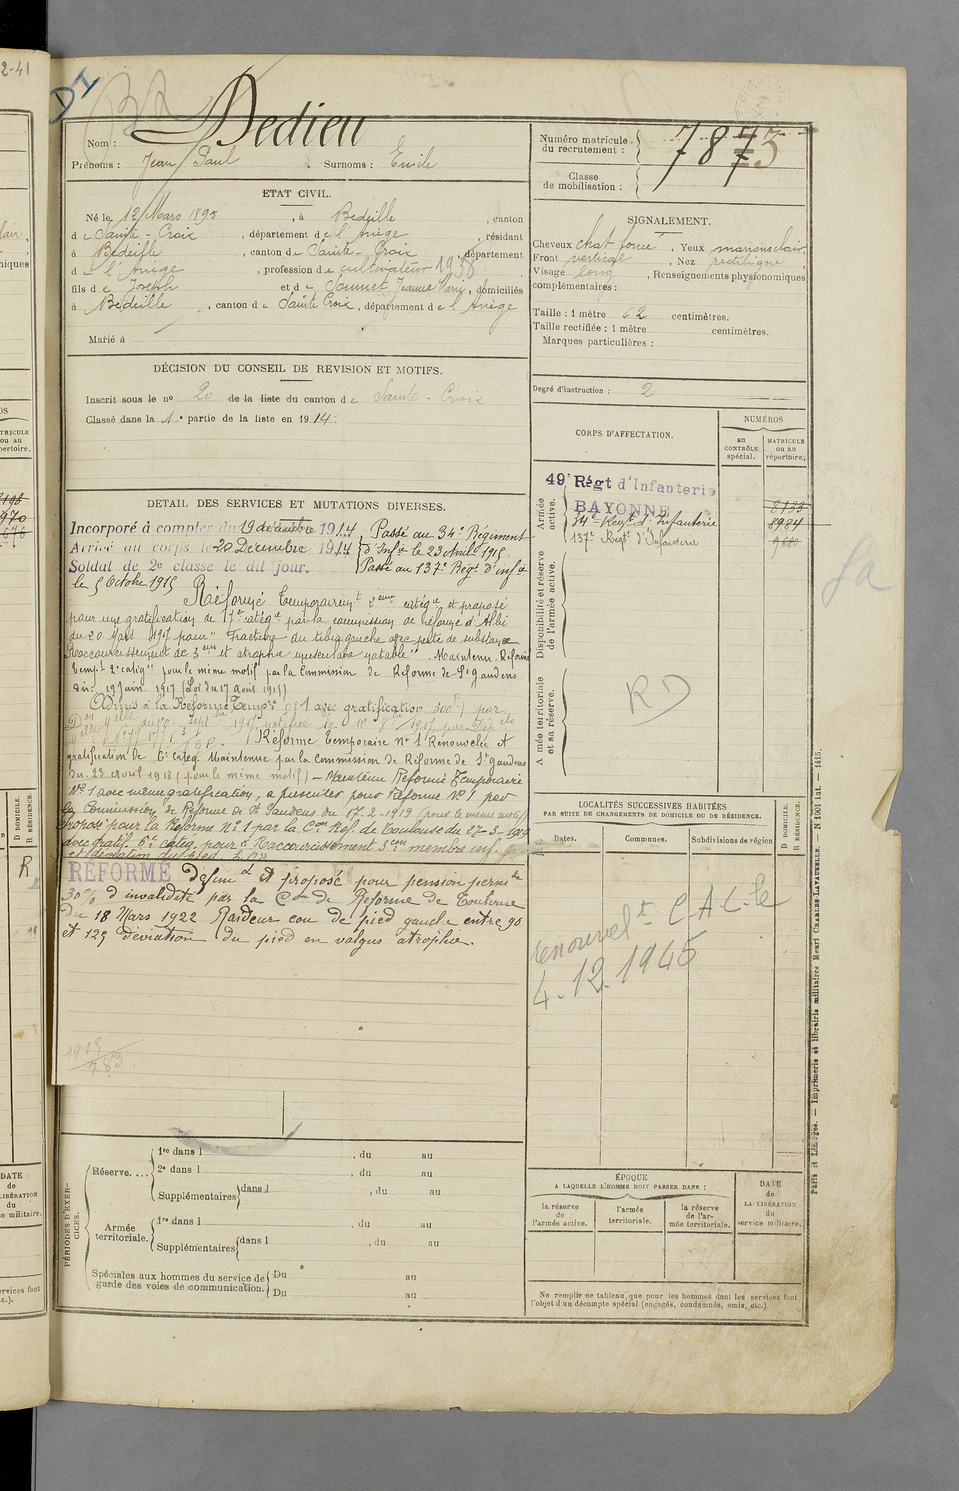 2-41
D I
Dedieu
Nom :
Prénoms : Jean Paul Surnoms : Emile
Numéro matricule du recrutement : 7873
Classe de mobilisation :
ETAT CIVIL.
Né le 12 Mars 1895, à Bedeille, canton
de Sainte-Croix, département de l'Ariège, résidant
à Bedeille, canton de Sainte-Croix, département
d e l'Ariège, profession de cultivateur 1938
fils de Joseph et de Jeanne Marie, domiciliés
à Bedeille, canton de Sainte Croix, département de l'Ariège
Marié à
SIGNALEMENT.
Cheveux chat. foncé, Yeux marrons clair
Front vertical, Nez rectiligne
Visage long, Renseignements physionomiques
complémentaires :
Taille : 1 mètre 62 centimètres.
Taille rectifiée : 1 mètre centimètres.
Marques particulières :
Degré d'instruction : 2
DÉCISION DU CONSEIL DE REVISION ET MOTIFS.
Inscrit sous le n° 20 de la liste du canton de Sainte-Croix
Classé dans la 1e partie de la liste en 1914.
DÉTAIL DES SERVICES ET MUTATIONS DIVERSES.
Incorporé à compter du 19 décembre 1914, Passé au 34e Régiment
Arrivé au corps le 20 Décembre 1914 d'Infie le 23 Avril 1915.
Soldat de 2e classe le dit jour. Passé au 137e Régt d'infie
le 5 Octobre 1915
Réformé temporairemt 2eme catégie et proposé
pour une gratification de 7e catégie par la commission de réforme d'Albi
du 20 Mars 1917 pour " Fracture du tibia gauche avec perte de substance
Raccourcissement de 3cm et atrophie musculaire notable". Maintenu Réformé
temp.t 2e catégie pour le même motif par la Commission de Réforme de St Gaudens
du 19 Juin 1917 (Loi du 17 août 1915)
Admis à la Réforme Tempre n° 1 avec gratification 300f par
Réforme temporaire n° 1 Renouvelée et
gratification de 6e catég. Maintenue par la Commission de Réforme de St gaudens
du 23 avril 1918 (pour le même motif) – Maintenu Réformé Temporaire
N° 1 avec même gratification, à présenter pour Réforme N° 1 par
la Commission de Réforme de St Gaudens du 17-2-1919 (pour le même motif)
Proposé pour la Réforme n° 1 par la Con Ref. de Toulouse du 27-3-1919
avec gratif. 6e catég. pour Raccourcissement 3cm membre inf.
et déviation du pied
RÉFORMÉ Définif et proposé pour pension permte
30% d'invalidité par la Con de Réforme de Toulouse
du 18 Mars 1922 Raideur cou de pied gauche entre 90
et 125 déviation du pied en valgus atrophie.
1915
783
CORPS D'AFFECTATION.
NUMÉROS
au CONTRÔLE spécial.
MATRICULE ou au répertoire.
Armée active.
49e Régt d'Infanterie
BAYONNE 8133
34e Regt d'Infanterie 8984
137e Regt d'Infanterie 9680
Disponibilité et réserve de l'armée active.
Armée territoriale et sa réserve.
RD
LOCALITÉS SUCCESSIVES HABITÉES
PAR SUITE DE CHANGEMENTS DE DOMICILE OU DE RÉSIDENCE.
Dates.
Communes.
Subdivisions de région
D DOMICILE.
R RÉSIDENCE.
Renouvelt C A C le
4.12.1945
PÉRIODES D'EXERCICES.
Réserve.... 1re dans l , du au
2e dans l , du au
Supplémentaires dans l , du au
Armée territoriale. 1re dans l , du au
Supplémentaires dans l , du au
Spéciales aux hommes du service de garde des voies de communication. Du au
Du au
ÉPOQUE
A LAQUELLE L'HOMME DOIT PASSER DANS :
la réserve de l'armée active.
l'armée territoriale.
la réserve de l'armée territoriale.
DATE de LA LIBÉRATION du service militaire.
Ne remplir ce tableau que pour les hommes dont les services font
l'objet d'un décompte spécial (engagés, condamnés, omis, etc.).
Paris et Limoges. — Imprimerie et librairie militaires Henri CHARLES-LAVAUZELLE.